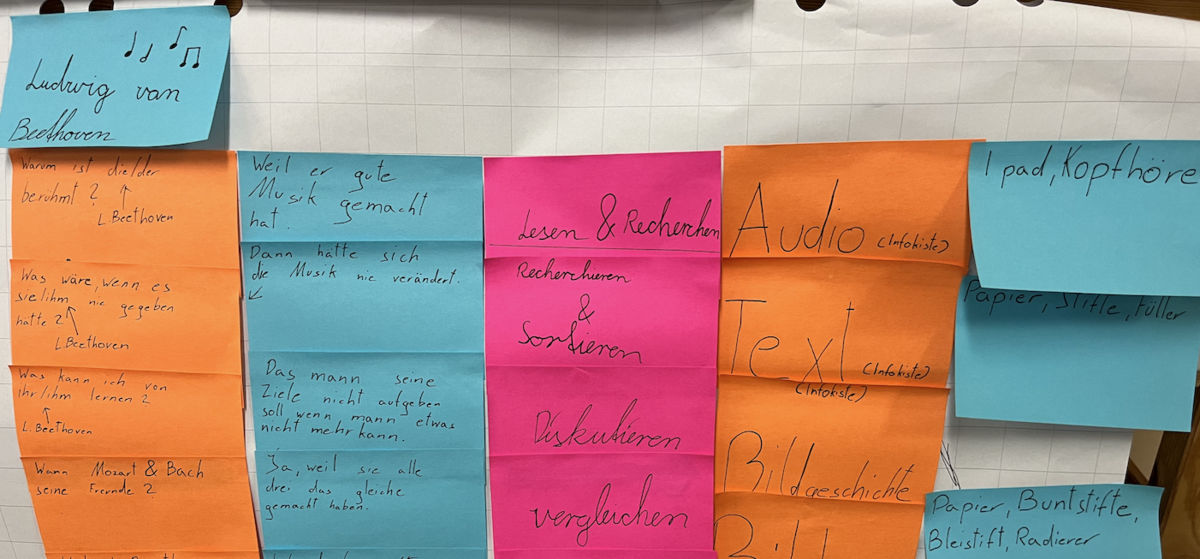 Ludwig van
Beethoven
Warum ist die/der
berühmt?
L.Beethoven
Was wäre, wenn es
sie/ihm nie gegeben
hätte?
L.Beethoven
Was kann ich von
ihr/ihm lernen?
L.Beethoven
Wann Mozart & Bach
seine Freunde?
Weil er gute
Musik gemacht
hat.
Dann hätte sich
die Musik nie verändert.
Das mann seine
Ziele nicht aufgeben
soll wenn mann etwas
nicht mehr kann.
Ja, weil sie alle
drei das gleiche
gemacht haben.
Lesen & Recherchen
Recherchieren
&
Sortieren
Diskutieren
vergleichen
Audio (Infokiste)
Text (Infokiste)
(Infokiste)
Bildgeschichte
Bild
I pad, Kopfhöre
Papier, Stifte, Füller
Papier, Buntstifte,
Bleistift, Radierer